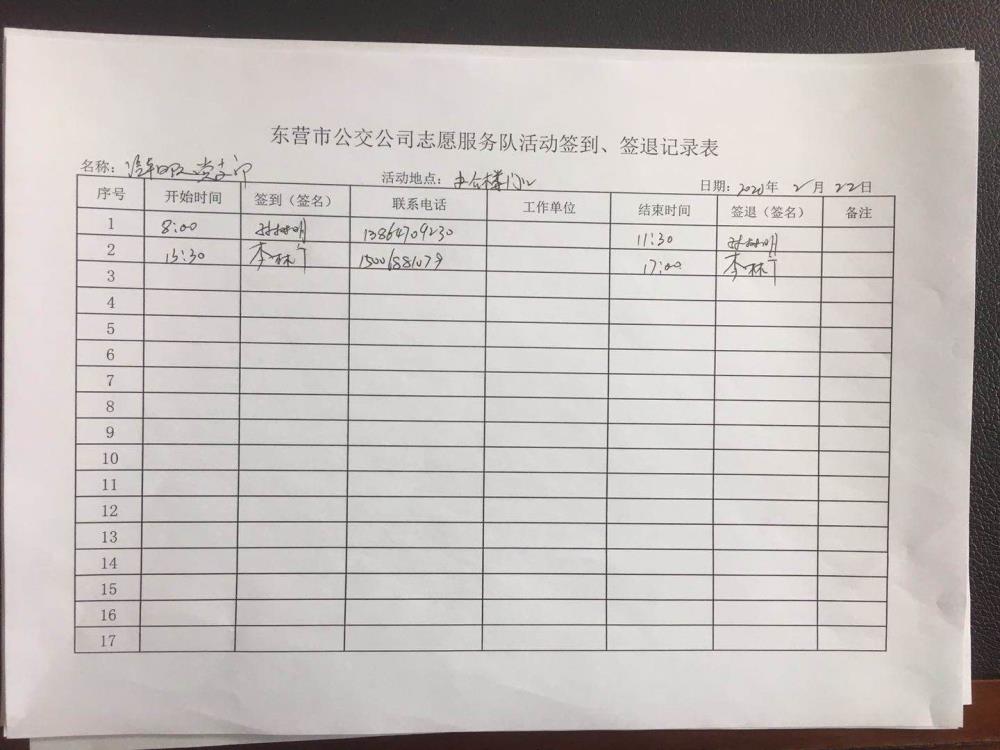 东营市公交公司志愿服务队活动签到、签退记录表
名称: 党支部 活动地点: 办公楼门口 日期: 2020年 2月 22日
序号 开始时间 签到（签名） 联系电话 工作单位 结束时间 签退（签名） 备注
1 8:00 13864709230 11:30
2 13:30 李林 15006881079 17:00 李林
3
4
5
6
7
8
9
10
11
12
13
14
15
16
17